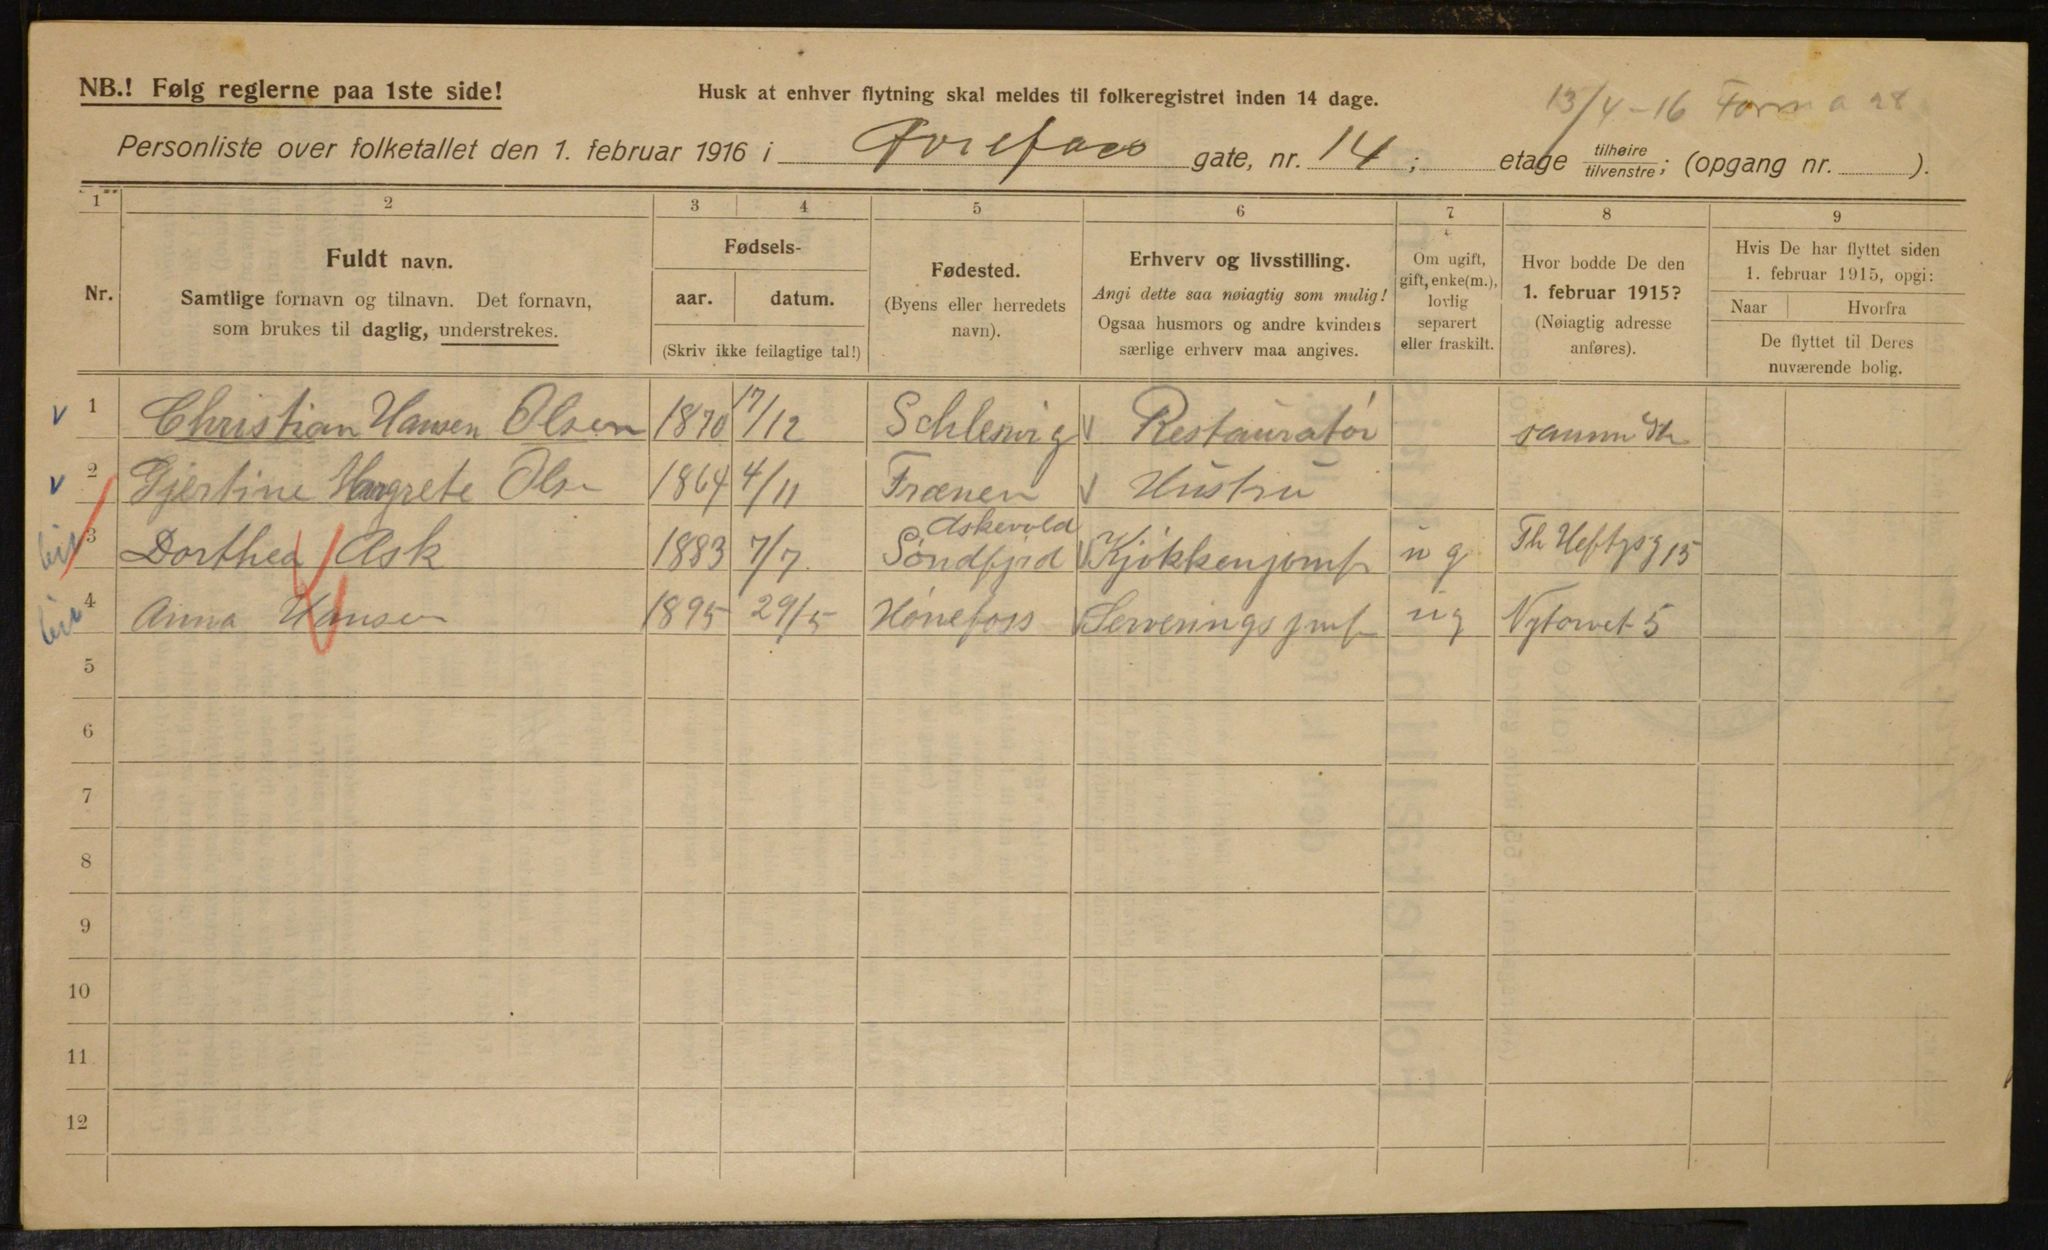 NB.! Følg reglerne paa 1ste side!
Husk at enhver flytning skal meldes til folkeregistret inden 14 dage.
13/4-16
Personliste over folketallet den 1. februar 1916 i gate, nr. 14; etage tilhøire/tilvenstre; (opgang nr. ).
1 2 3 4 5 6 7 8 9
Nr.
Fuldt navn.
Samtlige fornavn og tilnavn. Det fornavn,
som brukes til daglig, understrekes.
Fødsels-
aar. datum.
(Skriv ikke feilagtige tal!)
Fødested.
(Byens eller herredets
navn).
Erhverv og livsstilling.
Angi dette saa nøiagtig som mulig!
Ogsaa husmors og andre kvinders
særlige erhverv maa angives.
Om ugift,
gift, enke(m.),
lovlig
separert
eller fraskilt.
Hvor bodde De den
1. februar 1915?
(Nøiagtig adresse
anføres).
Hvis De har flyttet siden
1. februar 1915, opgi:
Naar Hvorfra
De flyttet til Deres
nuværende bolig.
1 Christian Hansen Olsen 1870 17/12 Schleswig Restauratør samme St
2 Gjertine Margrete Olse 1864 4/11 Frænen Hustru
3 Dorthea Ask 1883 7/7 Askevold Søndfjrd Kjøkkenjomfr ug Th Heftysg 15
4 Anna Hansen 1895 29/5 Hønefoss Serveringsjmfr ug Nytorvet 5
5
6
7
8
9
10
11
12